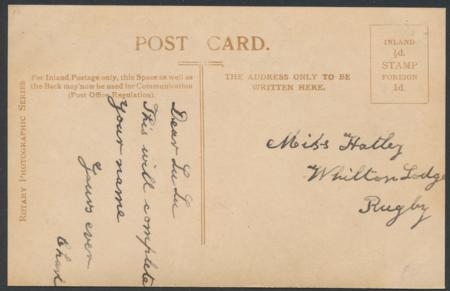 POST CARD.
INLAND
½d.
STAMP
FOREIGN
1d.
For Inland Postage only, this Space as well as
the Back may now be used for Communication
(Post Office Regulation).
THE ADDRESS ONLY TO BE
WRITTEN HERE.
ROTARY PHOTOGRAPHIC SERIES
Dear Lu Lu
This will complete
your name
Yours ever
Chas
Miss Hatley
Whilton Lodge
Rugby